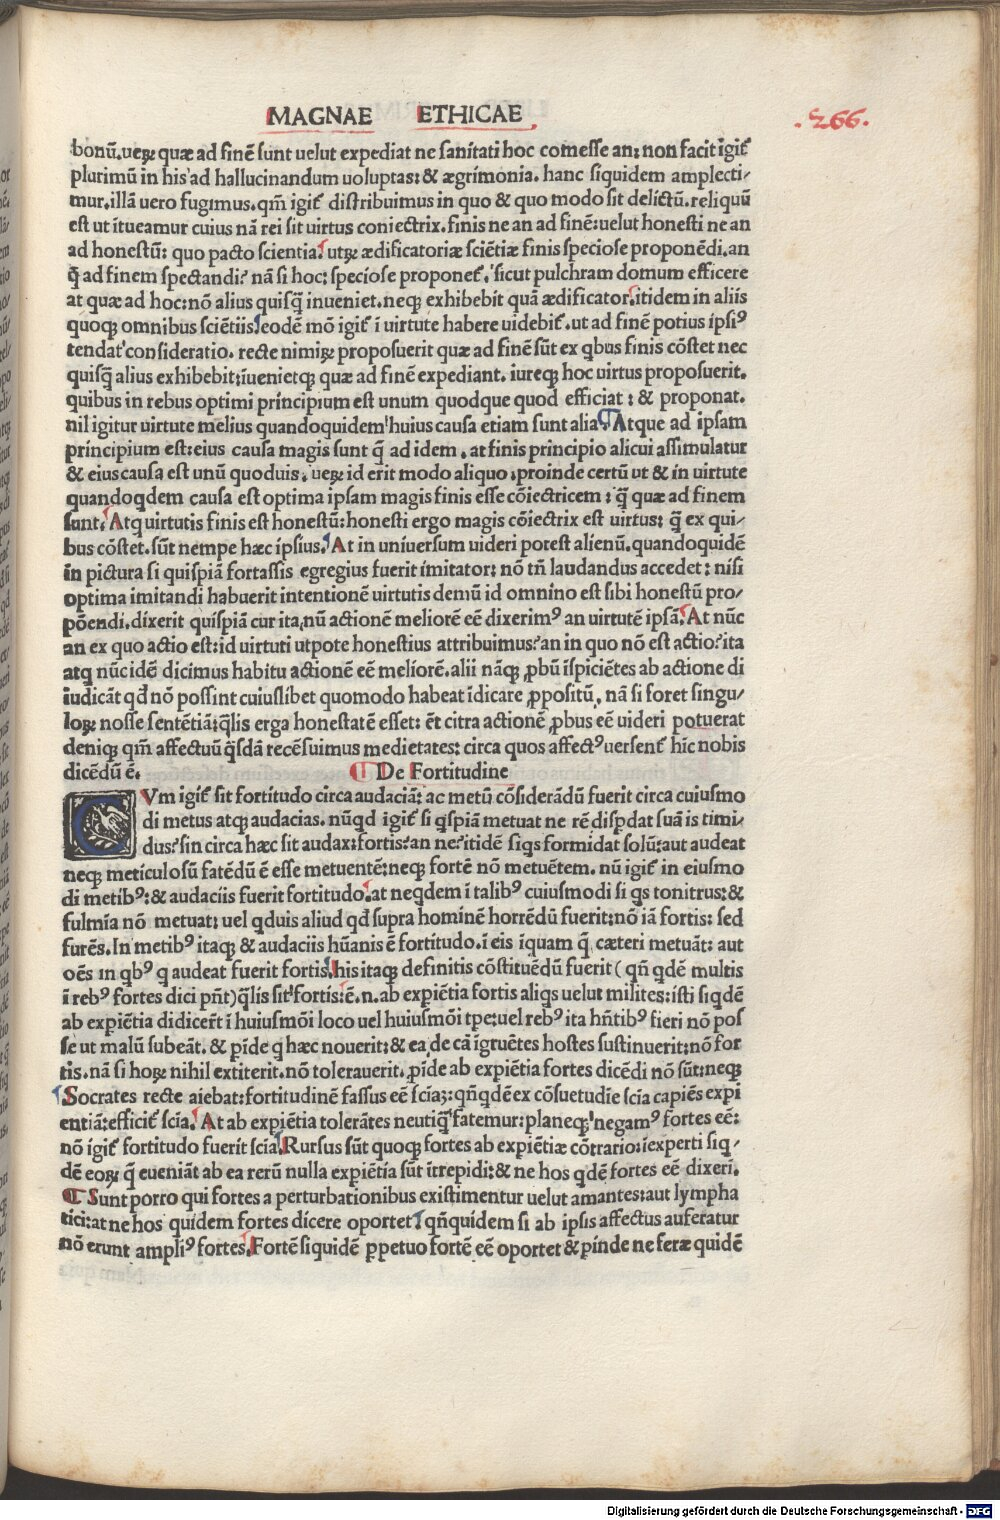 MAGNAE ETHICAE
.266.
bonū.ueꝝ quæ ad finē sunt uelut expediat ne sanitati hoc comesse an: non facit igiť
plurimū in his ad hallucinandum uoluptas: & ægrimonia. hanc siquidem amplecti-
mur.illā uero fugimus.qm̄ igiť distribuimus in quo & quo modo sit delictū.reliquū
est ut ītueamur cuius nā rei sit uirtus coniectrix.finis ne an ad finē: uelut honesti ne an
ad honestū: quo pacto scientia. utꝝ ædificatoriæ sciētiæ finis speciose proponēdi.an
q̄ ad finem spectandi? nā si hoc: speciose proponeť. sicut pulchram domum efficere
at quæ ad hoc: nō alius quisq̄ inueniet.neqꝫ exhibebit quā ædificator. itidem in aliis
quoqꝫ omnibus sciētiis. eodē mō igiť ī uirtute habere uidebiť.ut ad finē potius ipsiꝰ
tendat consideratio. recte nimiꝝ proposuerit quæ ad finē sūt ex qbus finis cōstet nec
quisq̄ alius exhibebit: īuenietqꝫ quæ ad finē expediant. iureqꝫ hoc uirtus proposuerit.
quibus in rebus optimi principium est unum quodque quod efficiat : & proponat.
nil igitur uirtute melius quandoquidem huius causa etiam sunt alia. Atque ad ipsam
principium est: eius causa magis sunt q̄ ad idem . at finis principio alicui assimulatur
& eius causa est unū quoduis . ueꝝ id erit modo aliquo . proinde certū ut & in uirtute
quandoqdem causa est optima ipsam magis finis esse cōiectricem : q̄ quæ ad finem
sunt. Atq uirtutis finis est honestū: honesti ergo magis cōiectrix est uirtus: q̄ ex qui-
bus cōstet. sūt nempe hæc ipsius. At in uniuersum uideri potest alienū.quandoquidē
in pictura si quispiā fortassis egregius fuerit imitator: nō tn̄ laudandus accedet : nisi
optima imitandi habuerit intentionē uirtutis demū id omnino est sibi honestū pro-
pōendi. dixerit quispiā cur ita, nū actionē meliorē eē dixerimꝰ an uirtutē ipsā. At nūc
an ex quo actio est: id uirtuti utpote honestius attribuimus? an in quo nō est actio? ita
atq nūc idē dicimus habitu actionē eē meliorē. alii nāqꝫ ꝓbū īspiciētes ab actione di
iudicāt qd̄ nō possint cuiuslibet quomodo habeat īdicare ꝓpositū, nā si foret singu-
loꝝ nosse sentētiā: q̄lis erga honestatē esset: ēt citra actionē ꝓbus eē uideri potuerat
deniqꝫ qm̄ affectuū q̄sdā recēsuimus medietates: circa quos affectꝰ uersenť hic nobis
dicēdū ē. De Fortitudine
CVm igiť sit fortitudo circa audaciā: ac metū cōsiderādū fuerit circa cuiusmo
di metus atqꝫ audacias. nūqd igiť si qspiā metuat ne rē dispdat suā is timi-
dus? sin circa hæc sit audax: fortis? an ne? itidē siqs formidat solū: aut audeat
neqꝫ meticulosū fatēdū ē esse metuentē: neqꝫ fortē nō metuētem. nū igiť in eiusmo
di metibꝰ: & audaciis fuerit fortitudo. at neqdem ī talibꝰ cuiusmodi si qs tonitrus: &
fulmīa nō metuat: uel qduis aliud qd̄ supra hominē horrēdū fuerit: nō iā fortis: sed
furēs.In metibꝰ itaqꝫ & audaciis hūanis ē fortitudo. ī eis īquam q̄ cæteri metuāt: aut
oēs in qbꝰ q audeat fuerit fortis. his itaqꝫ definitis cōstituēdū fuerit ( qn̄ qdē multis
ī rebꝰ fortes dici pn̄t) q̄lis sit fortis: ē.n. ab expiētia fortis aliqs uelut milites: isti siqdē
ab expiētia didicer̄t ī huiusmōi loco uel huiusmōi tpe: uel rebꝰ ita hn̄tibꝰ fieri nō pos
se ut malū subeāt. & pīde q hæc nouerit: & ea de cā īgruētes hostes sustinuerit: nō for
tis. nā si hoꝝ nihil extiterit.nō tolerauerit. ꝓīde ab expiētia fortes dicēdi nō sūt: neqꝫ
Socrates recte aiebat: fortitudinē fassus eē sciaꝫ: qn̄qdē ex cōsuetudīe scia capiēs expi
entiā: efficiť scia. At ab expiētia tolerātes neutiq̄ fatemur: planeqꝫ negamꝰ fortes eē:
nō igiť fortitudo fuerit scia. Rursus sūt quoqꝫ fortes ab expiētiæ cōtrario: īexperti siq-
dē eoꝝ q̄ eueniāt ab ea rerū nulla expiētia sūt ītrepidi: & ne hos qdē fortes eē dixerī.
Sunt porro qui fortes a perturbationibus existimentur uelut amantes: aut lympha
tici: at ne hos quidem fortes dicere oportet. qn̄quidem si ab ipsis affectus auferatur
nō erunt ampliꝰ fortes. Fortē siquidē ppetuo fortē eē oportet & pinde ne feræ quidē
Digitalisierung gefördert durch die Deutsche Forschungsgemeinschaft - DFG